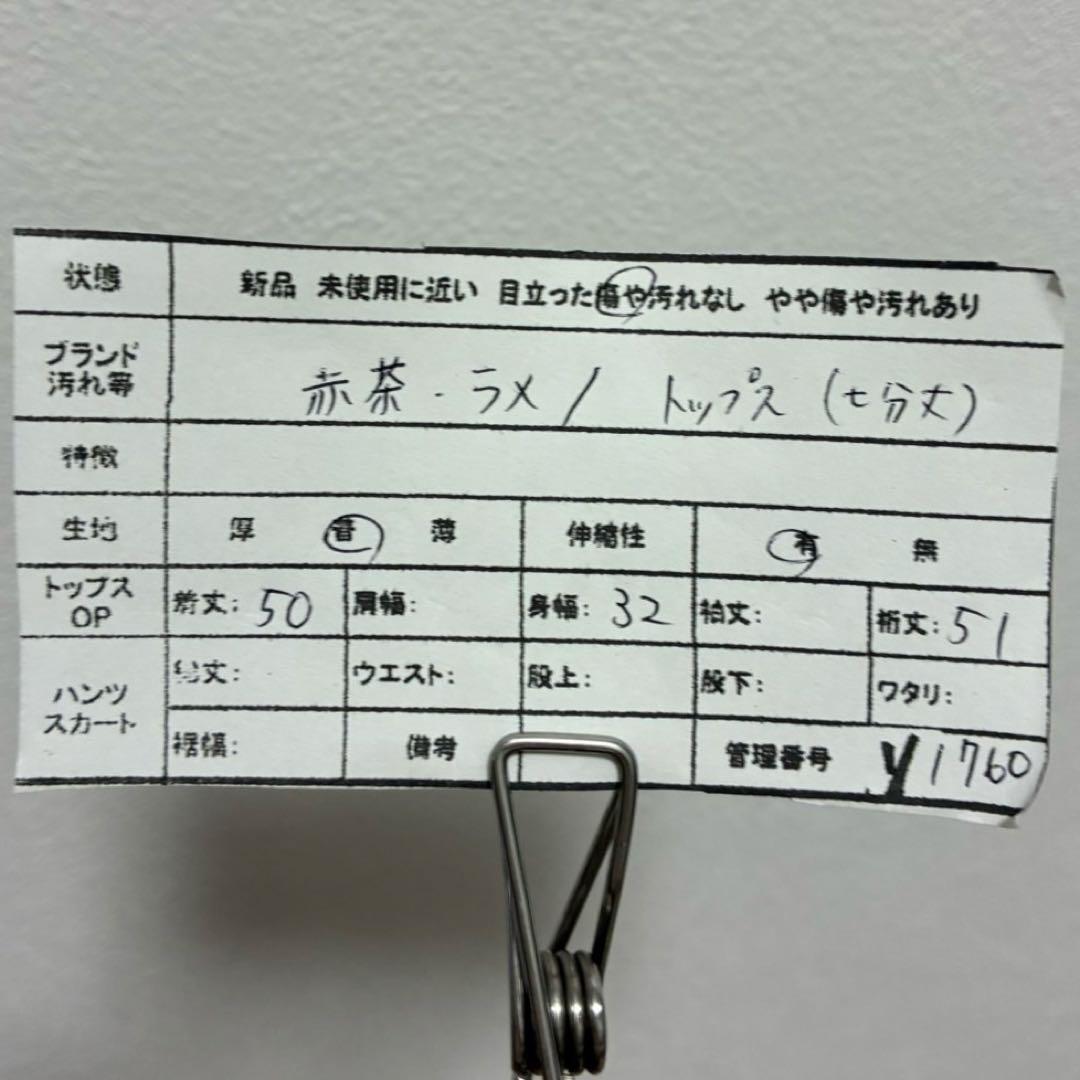 状態 新品 未使用に近い 目立った傷や汚れなし やや傷や汚れあり
ブランド
汚れ等 赤茶・ラメ / トップス (七分丈)
特徴
生地 厚 普 薄 伸縮性 有 無
トップス
OP 着丈: 50 肩幅: 身幅: 32 袖丈: 裄丈: 51
パンツ
スカート 総丈: ウエスト: 股上: 股下: ワタリ:
裾幅: 備考 管理番号 y1760